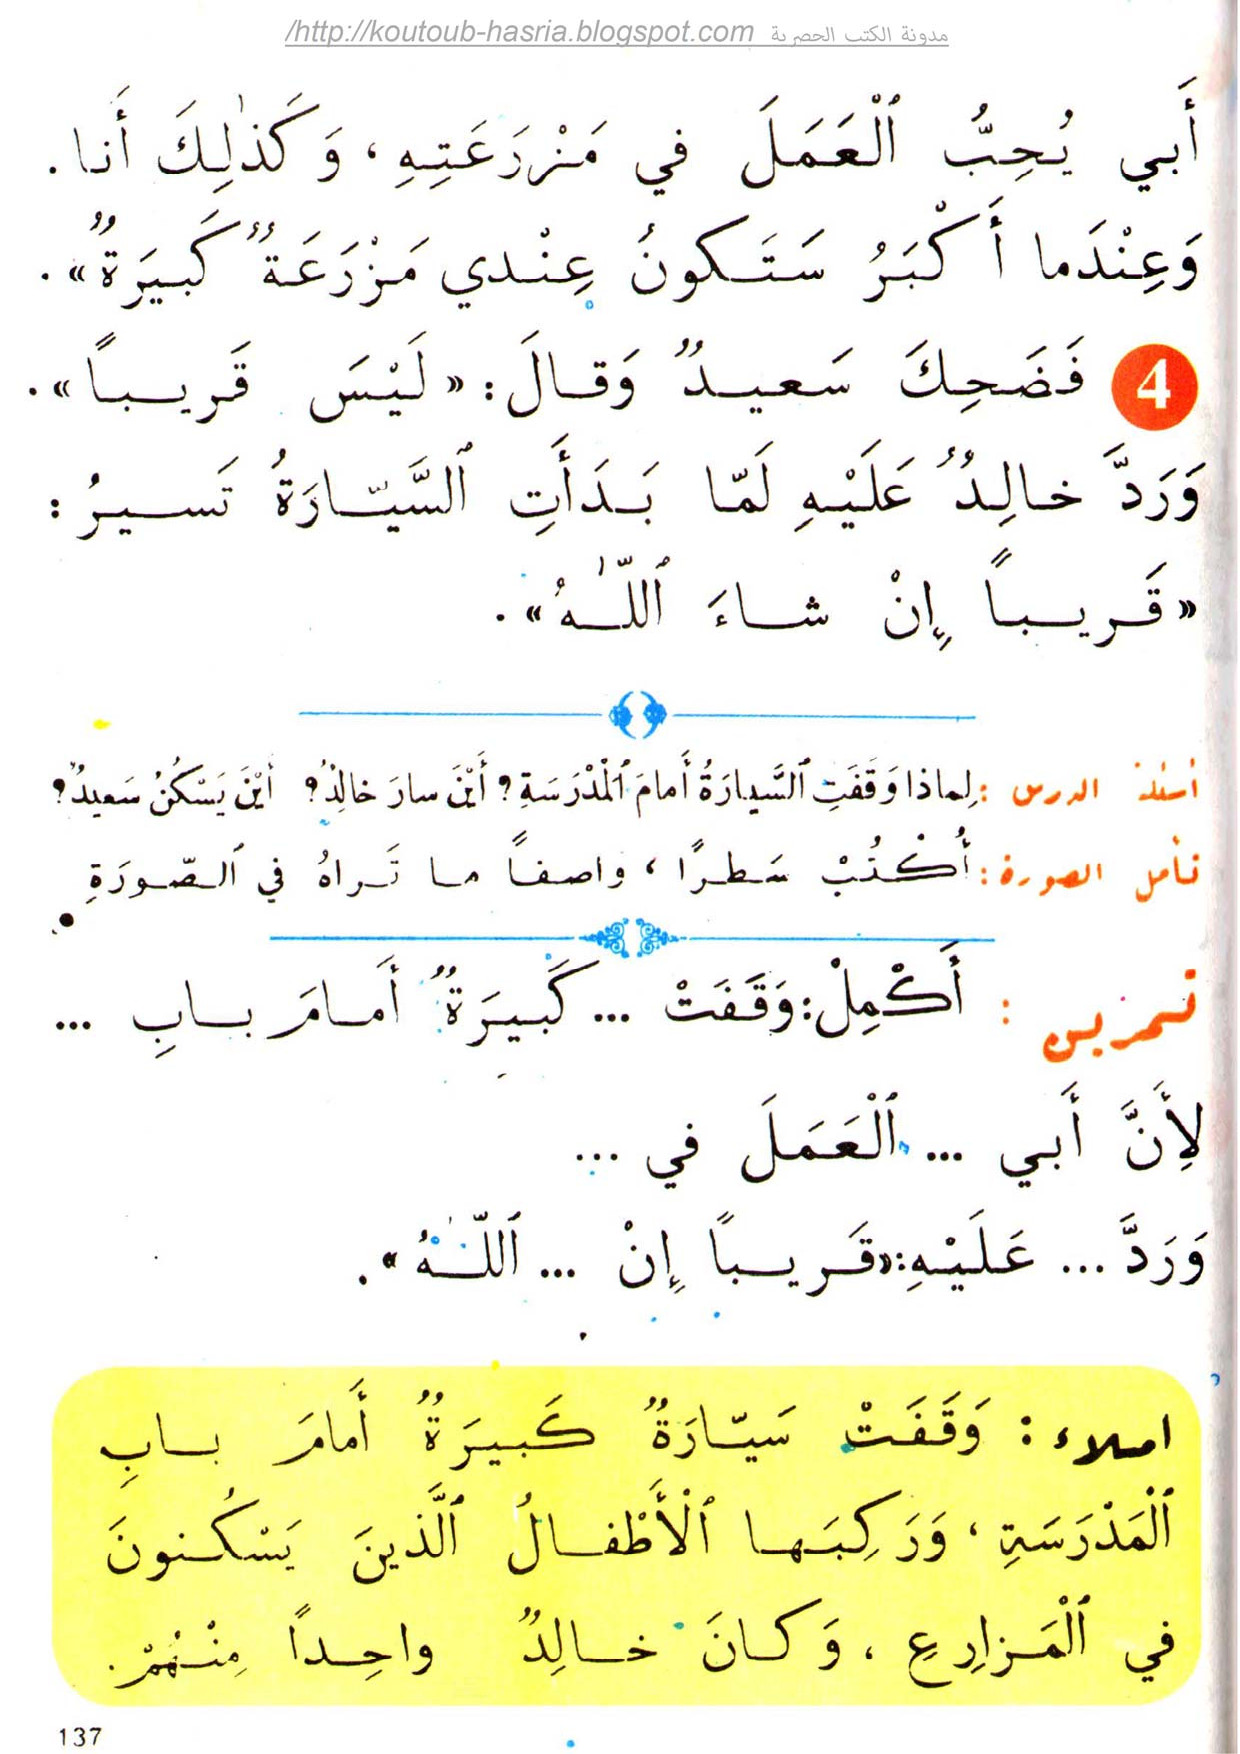 مدونة الكتب الحصرية http://koutoub-hasria.blogspot.com/
أَبي يُحِبُّ ٱلْعَمَلَ في مَزْرَعَتِهِ، وَكَذٰلِكَ أَنا.
وَعِنْدَما أَكْبَرُ سَتَكونُ عِنْدي مَزْرَعَةٌ كَبيرَةٌ».
4 فَضَحِكَ سَعيدٌ وَقالَ: «لَيْسَ قَريباً».
وَرَدَّ خالِدٌ عَلَيْهِ لَمّا بَدَأَتِ ٱلسَّيّارَةُ تَسيرُ:
«قَريباً إِنْ شاءَ ٱللّٰهُ».
أسئلة الدرس: لِماذا وَقَفَتِ ٱلسَّيارَةُ أَمامَ ٱلْمَدْرَسَةِ؟ أَيْنَ سارَ خالِدٌ؟ أَيْنَ يَسْكُنُ سَعيدٌ؟
تأمل الصورة: أُكْتُبْ سَطرًا، واصفاً ما تَراهُ في ٱلصّورَةِ.
تمرين: أَكْمِلْ: وَقَفَتْ ... كَبيرَةٌ أَمامَ بابِ ...
لِأَنَّ أَبي ... ٱلْعَمَلَ في ...
وَرَدَّ ... عَلَيْهِ: «قَريباً إِنْ ... ٱللّٰهُ».
املاء: وَقَفَتْ سَيّارَةٌ كَبيرَةٌ أَمامَ بابِ
ٱلْمَدْرَسَةِ، وَرَكِبَها ٱلْأَطْفالُ ٱلَّذينَ يَسْكُنونَ
في ٱلْمَزارِعِ، وَكانَ خالِدٌ واحِداً مِنْهُمْ.
137